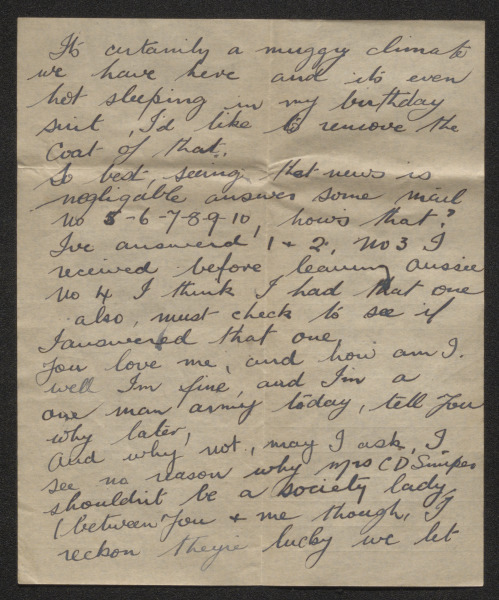 Its certainly a muggy climate
we have here and its even
hot sleeping in my birthday
suit, I'd like to remove the
coat of that.
So best, seeing that news is
negligable answer some mail
No 5-6-7-8-9-10, hows that?
I've answered 1 + 2, No 3 I
received before leaving aussie
No 4 I think I had that one
also, must check to see if
I answered that one,
You love me, and how am I.
well I'm fine, and I'm a
one man army today, tell you
why later,
And why not, may I ask, I
see no reason why Mrs C D
shouldn't be a society lady
(between you + me though, I
reckon theyre lucky we let